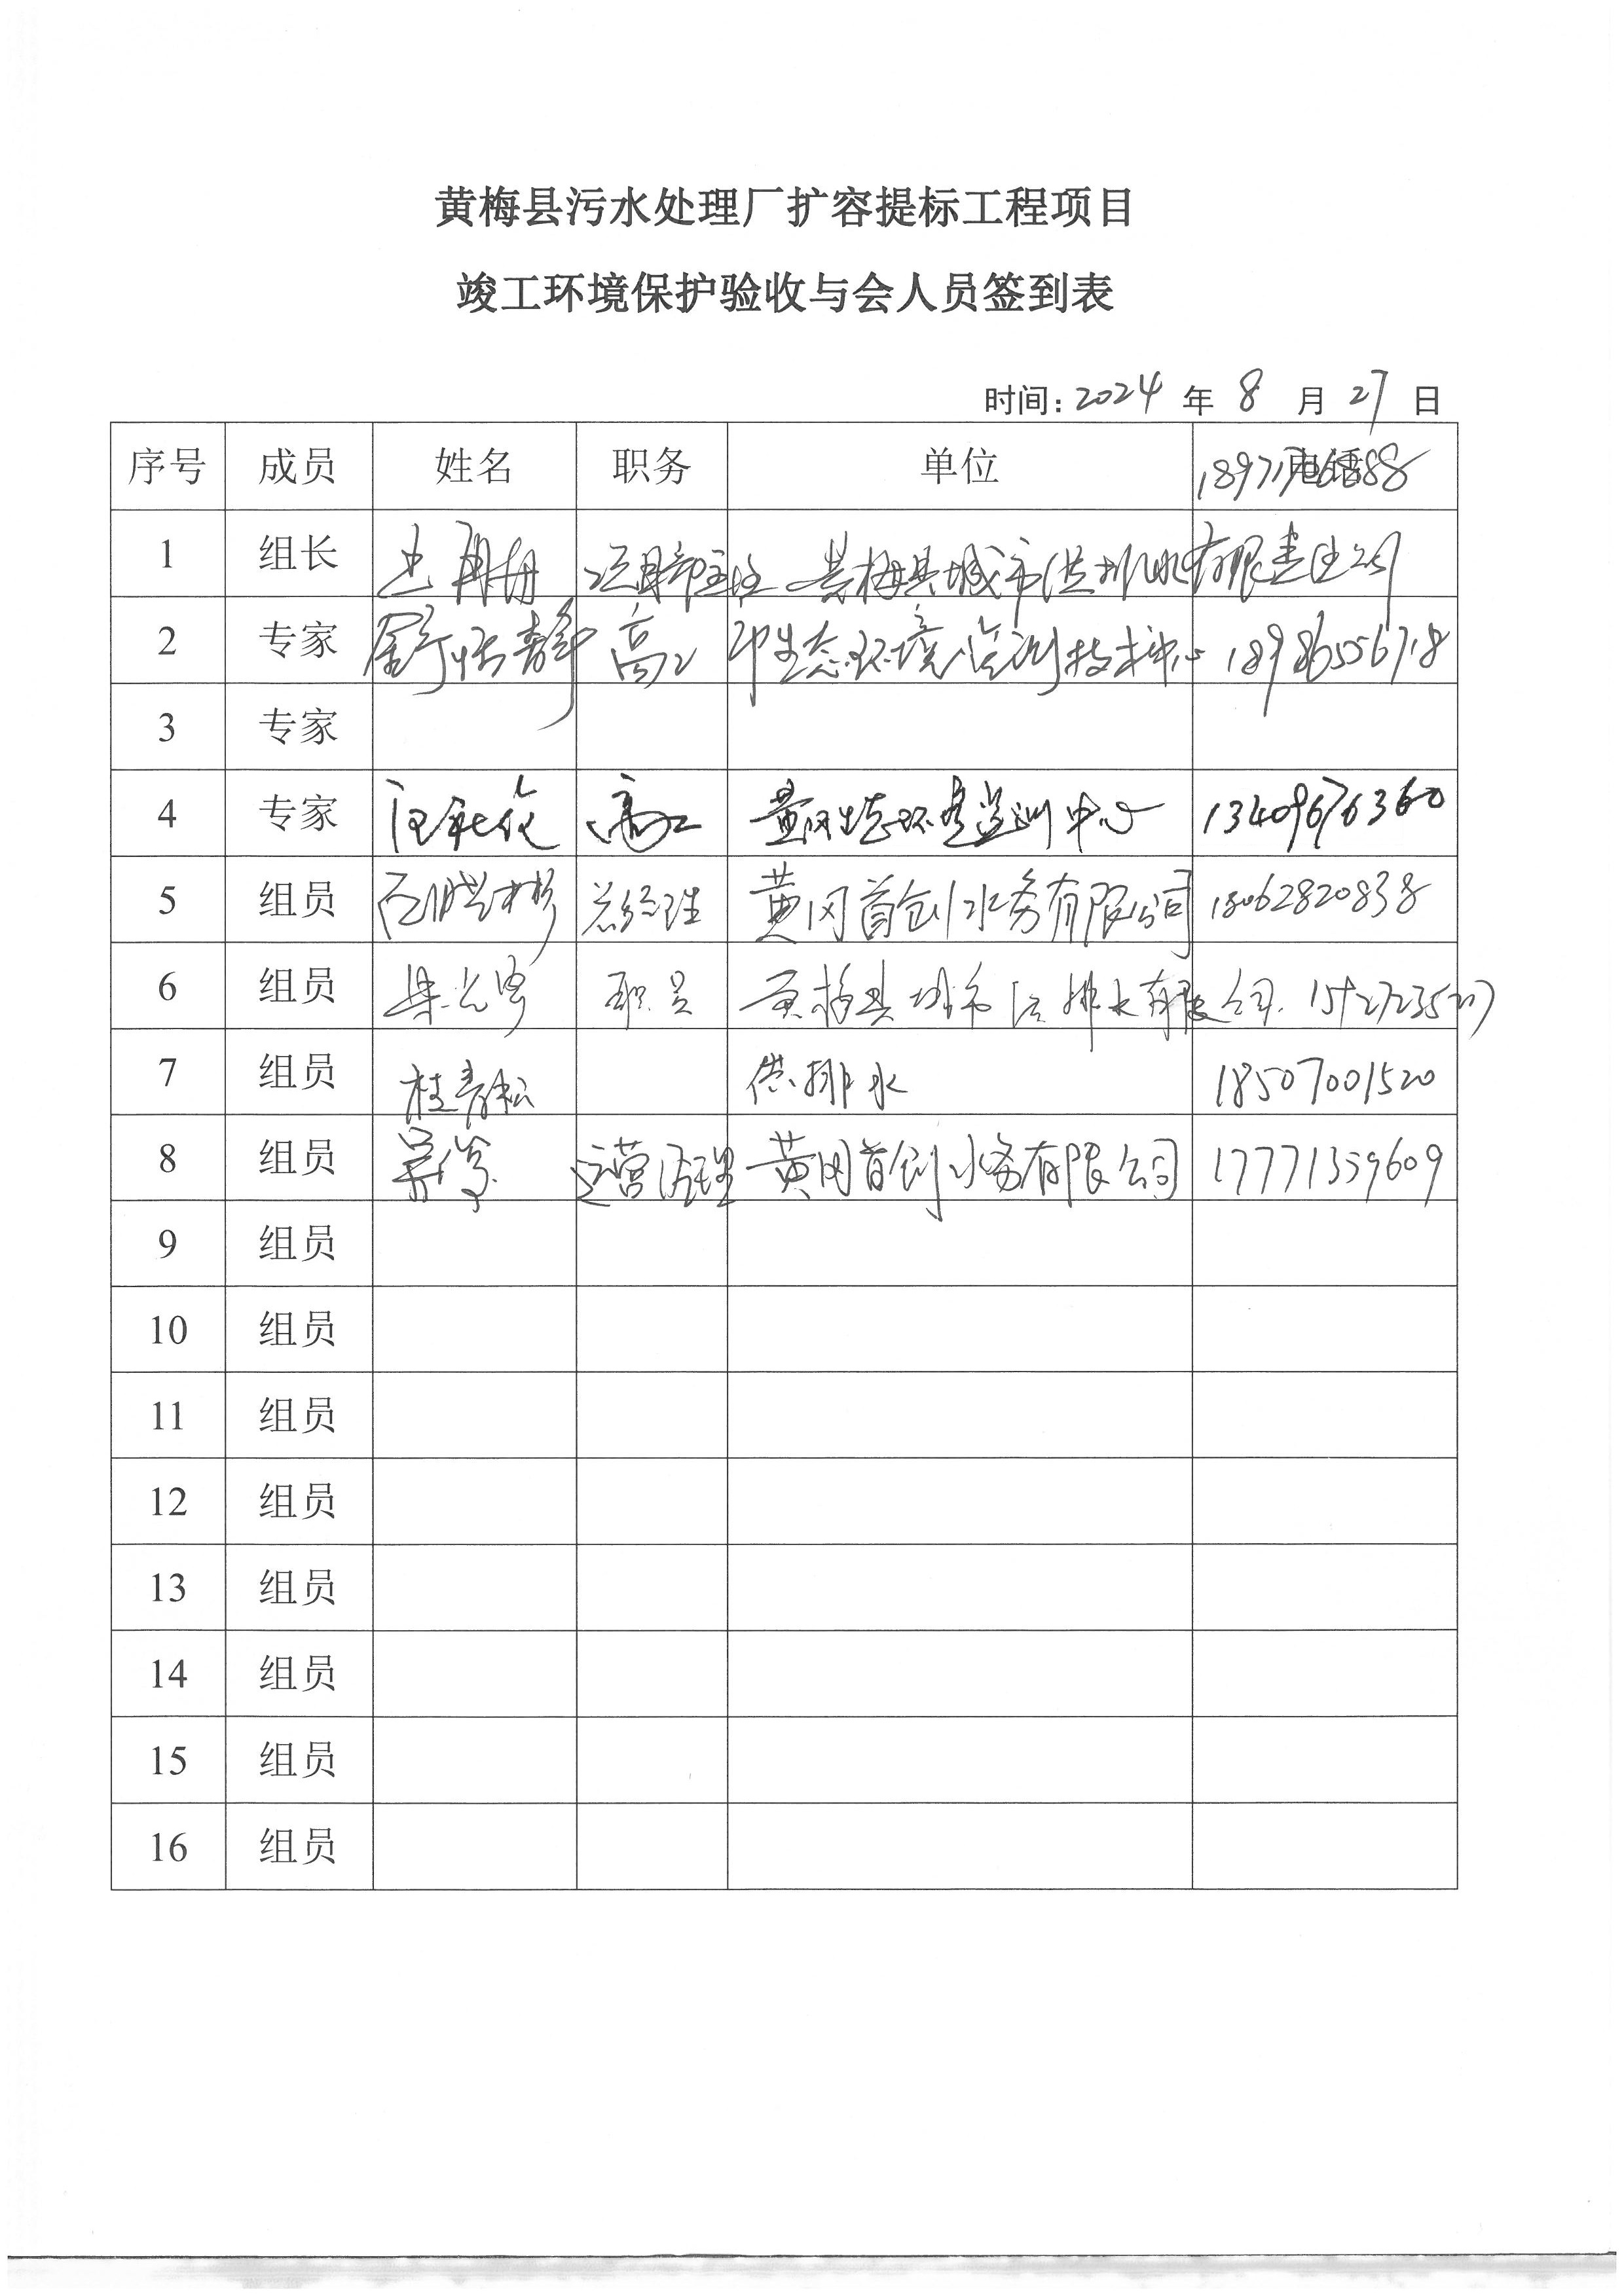 黄梅县污水处理厂扩容提标工程项目
竣工环境保护验收与会人员签到表
时间：2024 年 8 月 27 日
序号 成员 姓名 职务 单位 电话
1 组长 黄梅县城市供排水有限责任公司
2 专家 高工 市生态环境监测技术中心 18986556718
3 专家
4 专家 高工 黄冈生态环境监测中心 13409676360
5 组员 总经理 黄冈首创水务有限公司 18062820838
6 组员 职员 黄梅县城市供排水有限公司
7 组员 桂青松 供排水 18507001520
8 组员 运营经理 黄冈首创水务有限公司 17771359609
9 组员
10 组员
11 组员
12 组员
13 组员
14 组员
15 组员
16 组员